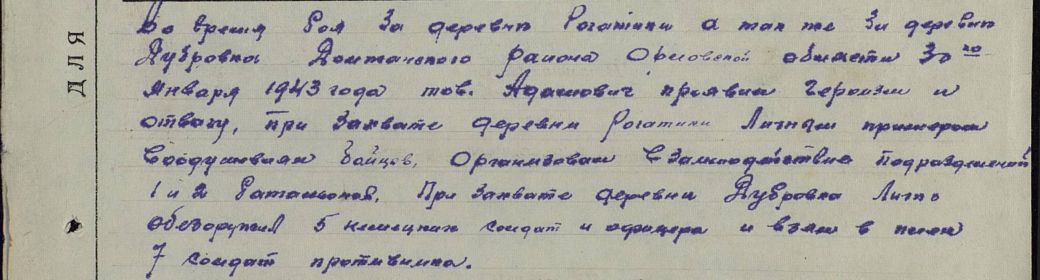 ДЛЯ
Во время боя за деревни Рогатики а так же за деревни
Дубровка Должанского района Орловской области 30го
января 1943 года тов. Адамович проявил героизм и
отвагу, при захвате деревни Рогатики личным примером
воодушевлял бойцов. Организовал взаимодействие подразделений
1 и 2 баталионов. При захвате деревни Дубровка лично
обезоружил 5 немецких солдат и офицера и взял в плен
7 солдат противника.